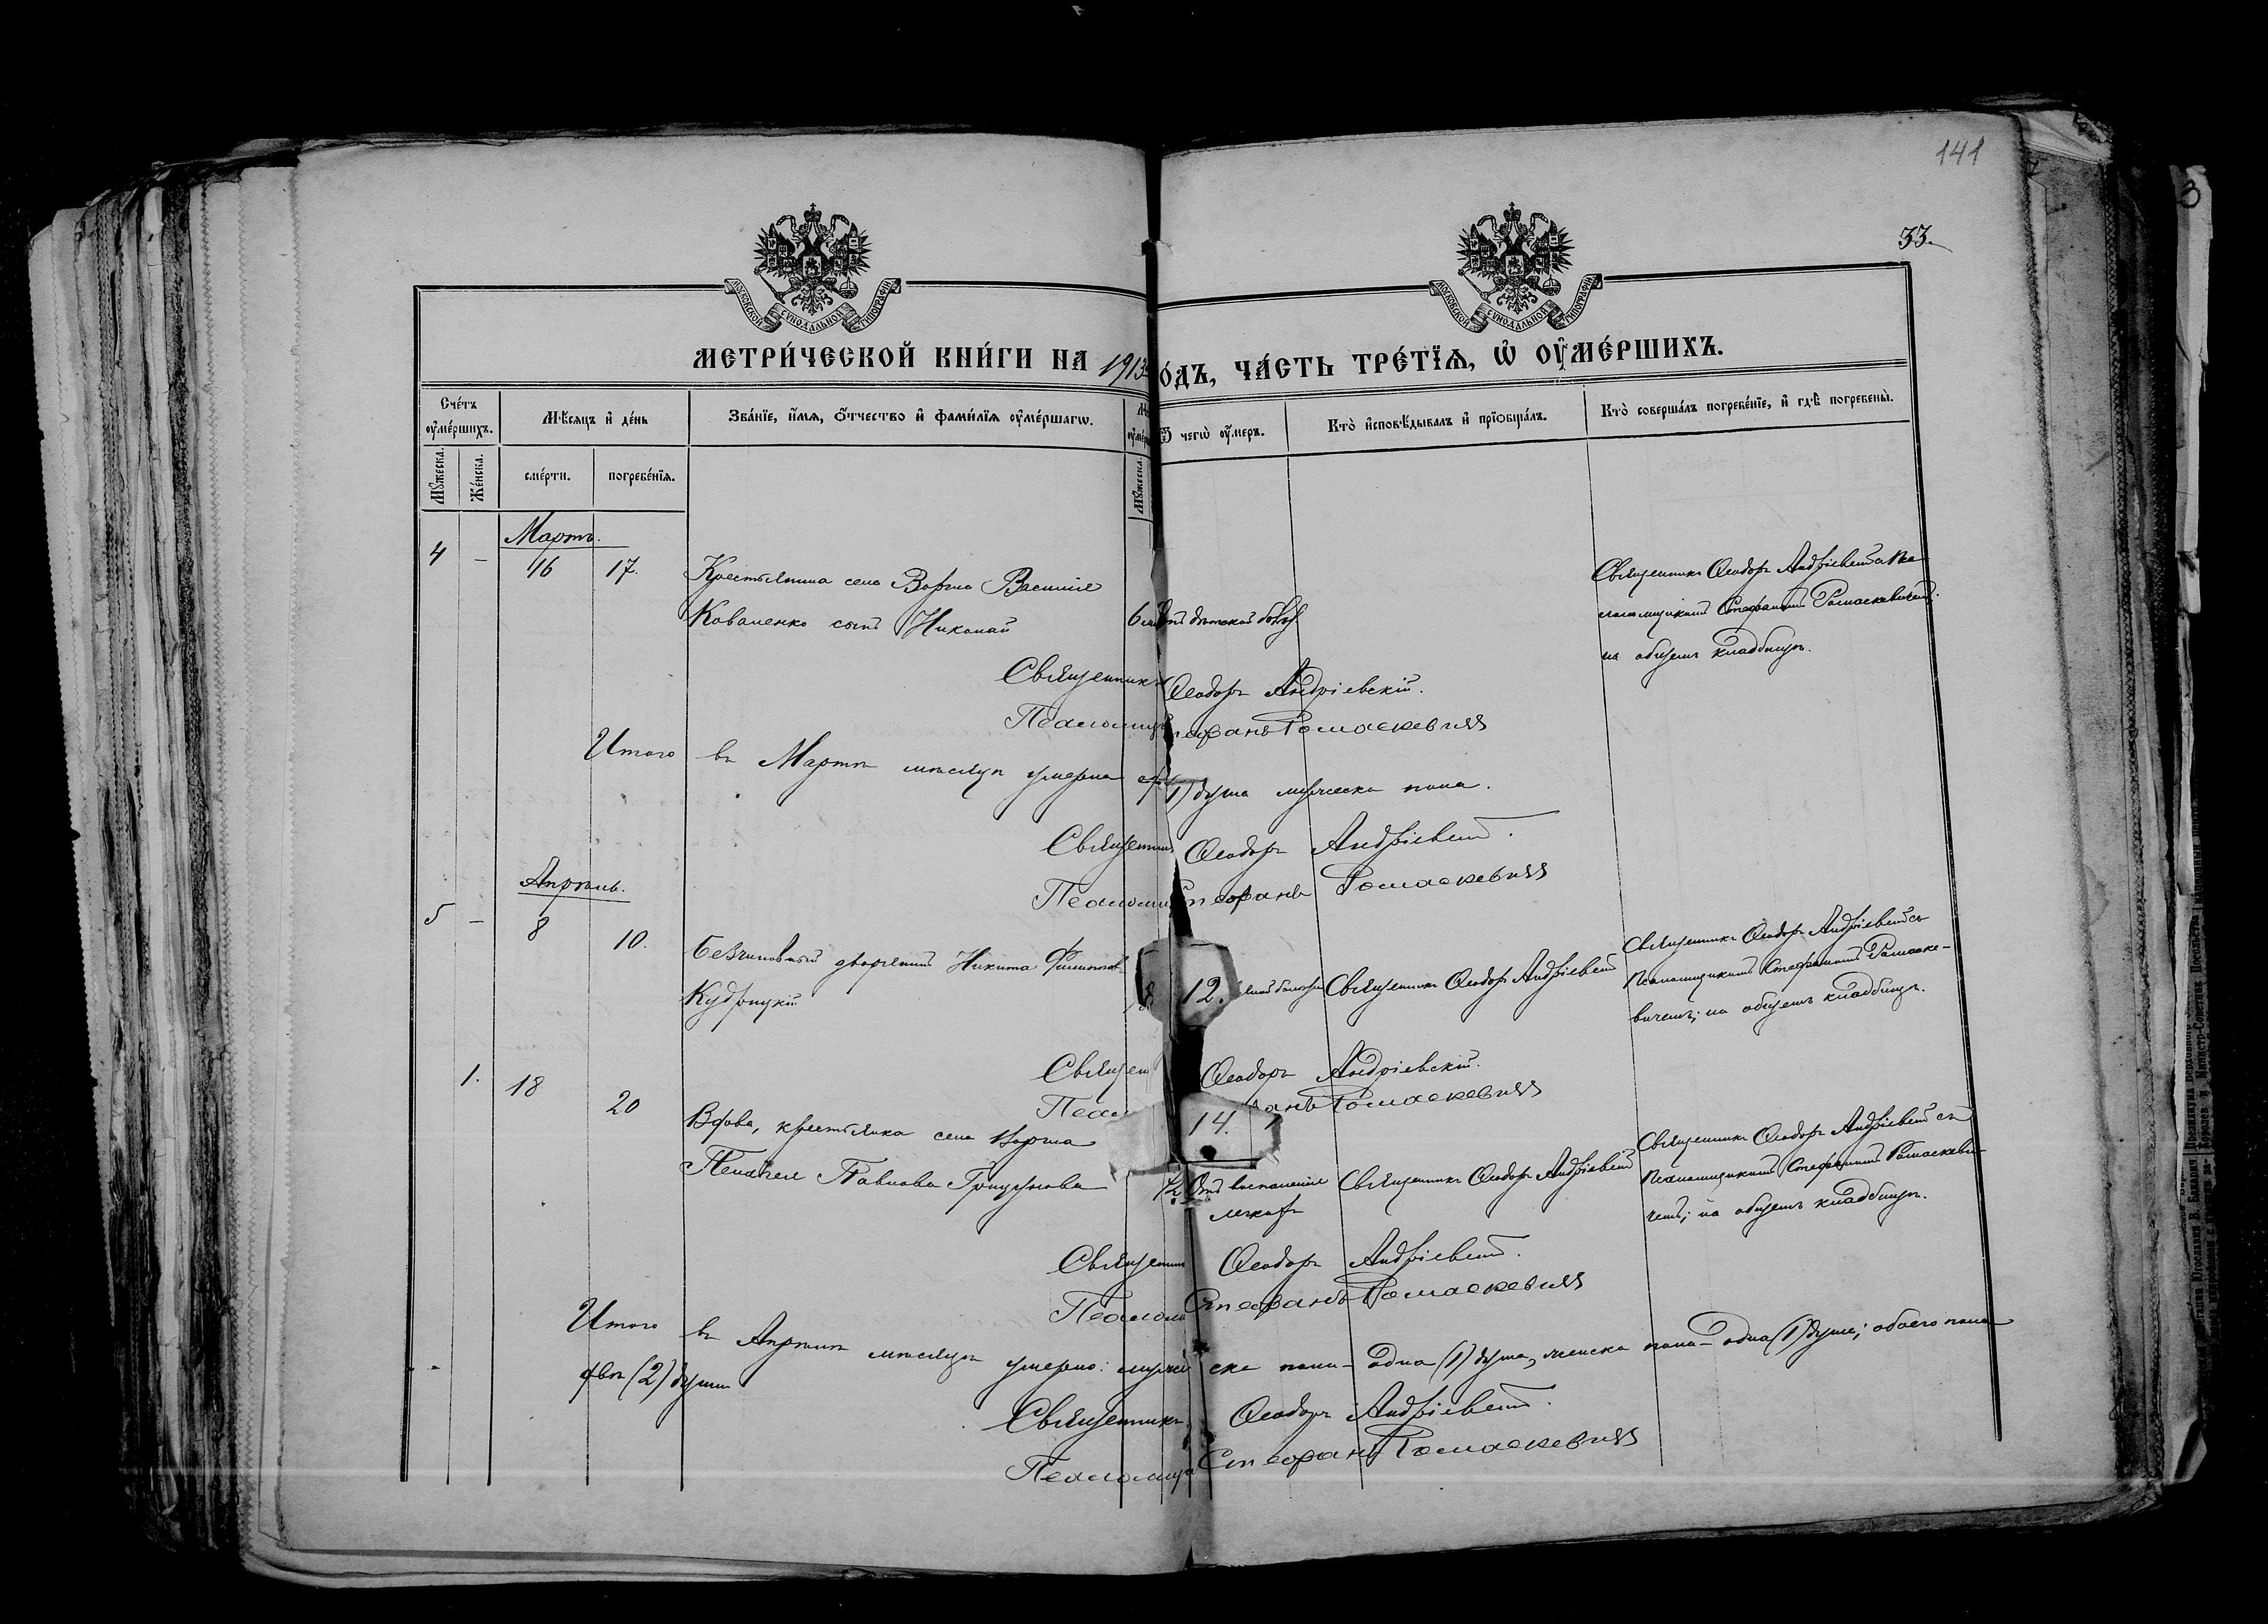 141
33.
МОСКОВСКОЙ СѴНОДАЛЬНОЙ ТИПОГРАФІИ
МОСКОВСКОЙ СѴНОДАЛЬНОЙ ТИПОГРАФІИ
МЕТРИ́ЧЕСКОЙ КНИ́ГИ НА 1913
О́ДЪ, ЧА́СТЬ ТРЕ́ТЇѦ, Ѡ҆ ОУ҆МЕ́РШИХЪ.
Сче́тъ оу҆ме́ршихъ.
Мѣ́сяцъ и҆ де́нь
Зва́нїе, и҆́мя, ѻ҆́тчество и҆ фамі́лїя оу҆ме́ршагѡ.
Ѿ чегѡ̀ оу҆́меръ.
Кто̀ и҆сповѣ́дывалъ и҆ прїѻбща́лъ.
Кто̀ соверша́лъ погребе́нїе, и҆ гдѣ̀ погребены̀.
Мꙋ́жеска.
Же́нска.
сме́рти.
погребе́нїя.
Мꙋ́жеска.
Мартъ.
4 – 16 17.
Крестьянина села Ворма Василія
Коваленко сынъ Николай
6
Священникъ Ѳеодоръ Андріевскій
псаломщикомъ Стефаномъ Ромаскевичемъ;
на общемъ кладбищѣ.
Священникъ Ѳеодоръ Андріевскій.
Псаломщ Стефанъ Ромаскевичъ
Итого въ Мартѣ мѣсяцѣ умерла (1) душа мужеска пола.
Священник Ѳеодоръ Андріевскій.
Псаломщ Стефанъ Ромаскевичъ
Апрѣль.
5 – 8 10.
Безчиновный дворянинъ Никита Филиповъ
Кудрицкій
12.
Священникъ Ѳеодоръ Андріевскій
Священникъ Ѳеодоръ Андріевскій съ
псаломщикомъ Стефаномъ Ромаске-
вичемъ; на общемъ кладбищѣ.
Священ Ѳеодоръ Андріевскій.
Псал анъ Ромаскевичъ
14.
1. 18 20
Вдова, крестьянка села Ворма
Пелагея Павлова Грицунова
72
Отъ воспаленія
легкихъ
Священникъ Ѳеодоръ Андріевскій
Священникъ Ѳеодоръ Андріевскій съ
псаломщикомъ Стефаномъ Ромаскеви-
чемъ; на общемъ кладбищѣ.
Священник Ѳеодоръ Андріевскій.
Псалом Стефанъ Ромаскевичъ
Итого въ Апрѣлѣ мѣсяцѣ умерло: мужеска пола – одна (1) душа, женска пола – одна (1) душа; обоего пола
двѣ (2) души
Священникъ Ѳеодоръ Андріевскій.
Псаломщ Стефанъ Ромаскевичъ